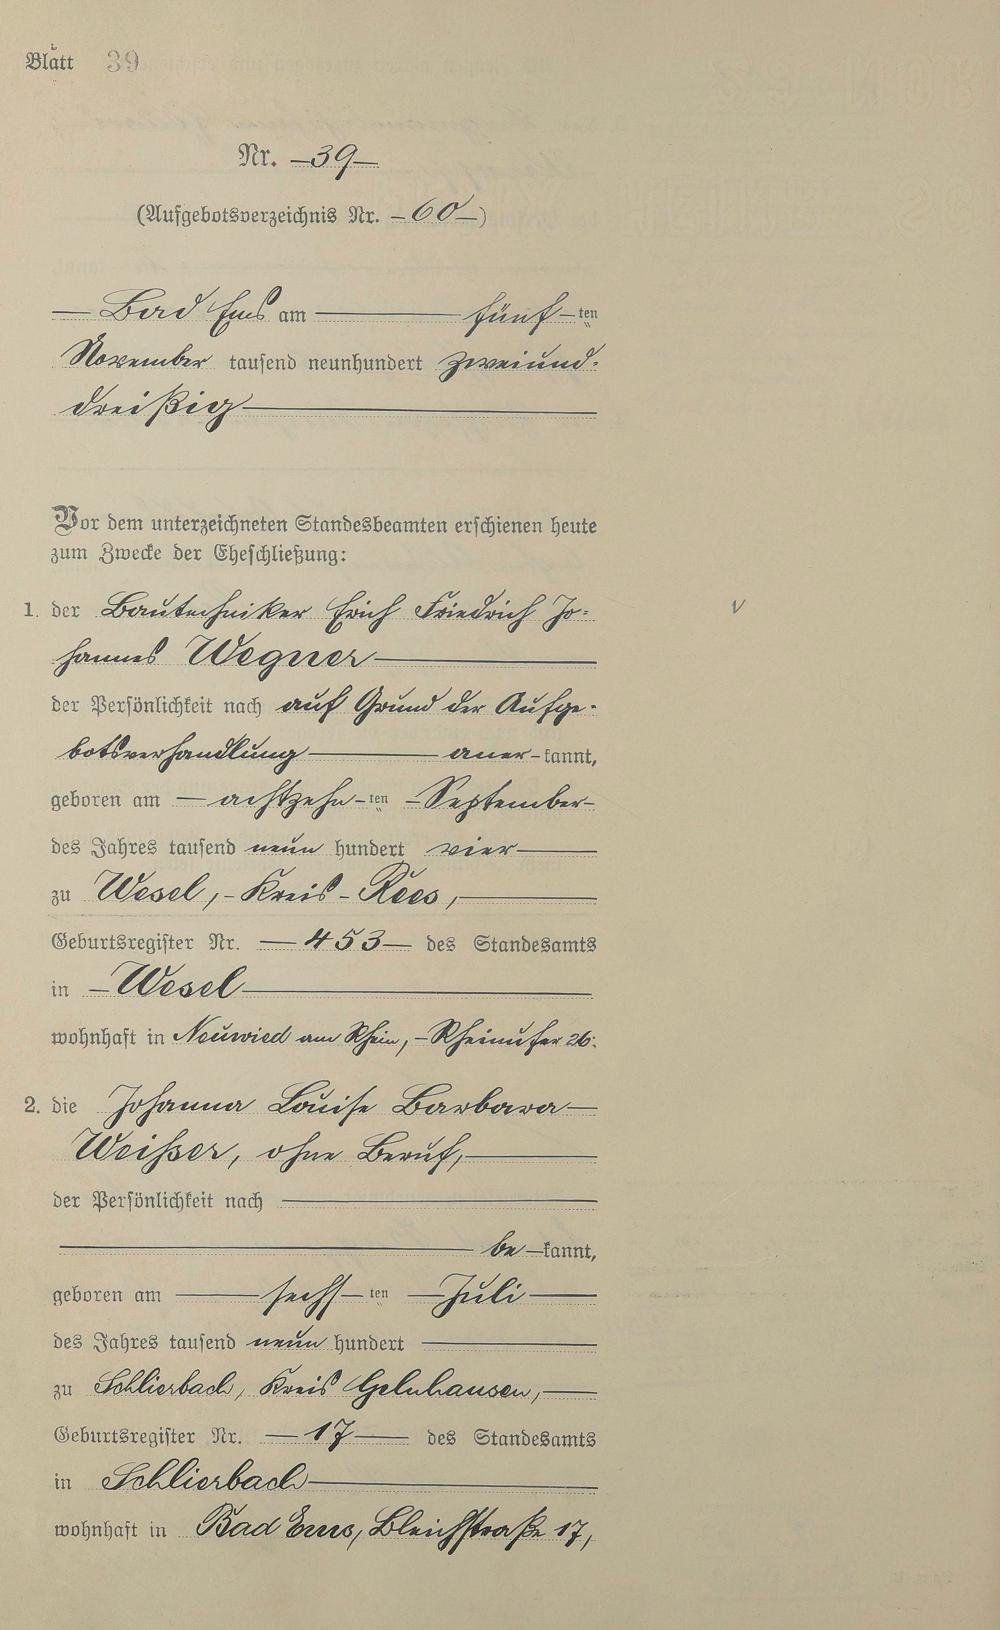 Blatt 39
Nr. —39—
(Aufgebotsverzeichnis Nr. —60—)
— Bad Ems am — fünf—ten
November tausend neunhundert zweiund-
dreißig —
Vor dem unterzeichneten Standesbeamten erschienen heute
zum Zwecke der Eheschließung:
1. der Bautechniker Erich Friedrich Jo-
hannes Wegner —
der Persönlichkeit nach auf Grund der Aufge-
botsverhandlung — aner—kannt,
geboren am — achtzehn—ten — September—
des Jahres tausend neun hundert vier —
zu Wesel, - Kreis - Rees, —
Geburtsregister Nr. — 453 — des Standesamts
in — Wesel —
wohnhaft in Neuwied am Rhein, — Rheinufer 26.
2. die Johanna Louise Barbara —
Weisser, ohne Beruf, —
der Persönlichkeit nach —
— be—kannt,
geboren am — sechs—ten — Juli —
des Jahres tausend neun hundert —
zu Schlierbach, Kreis Gelnhausen, —
Geburtsregister Nr. — 17 — des Standesamts
in Schlierbach —
wohnhaft in Bad Ems, Bleichstraße 17,